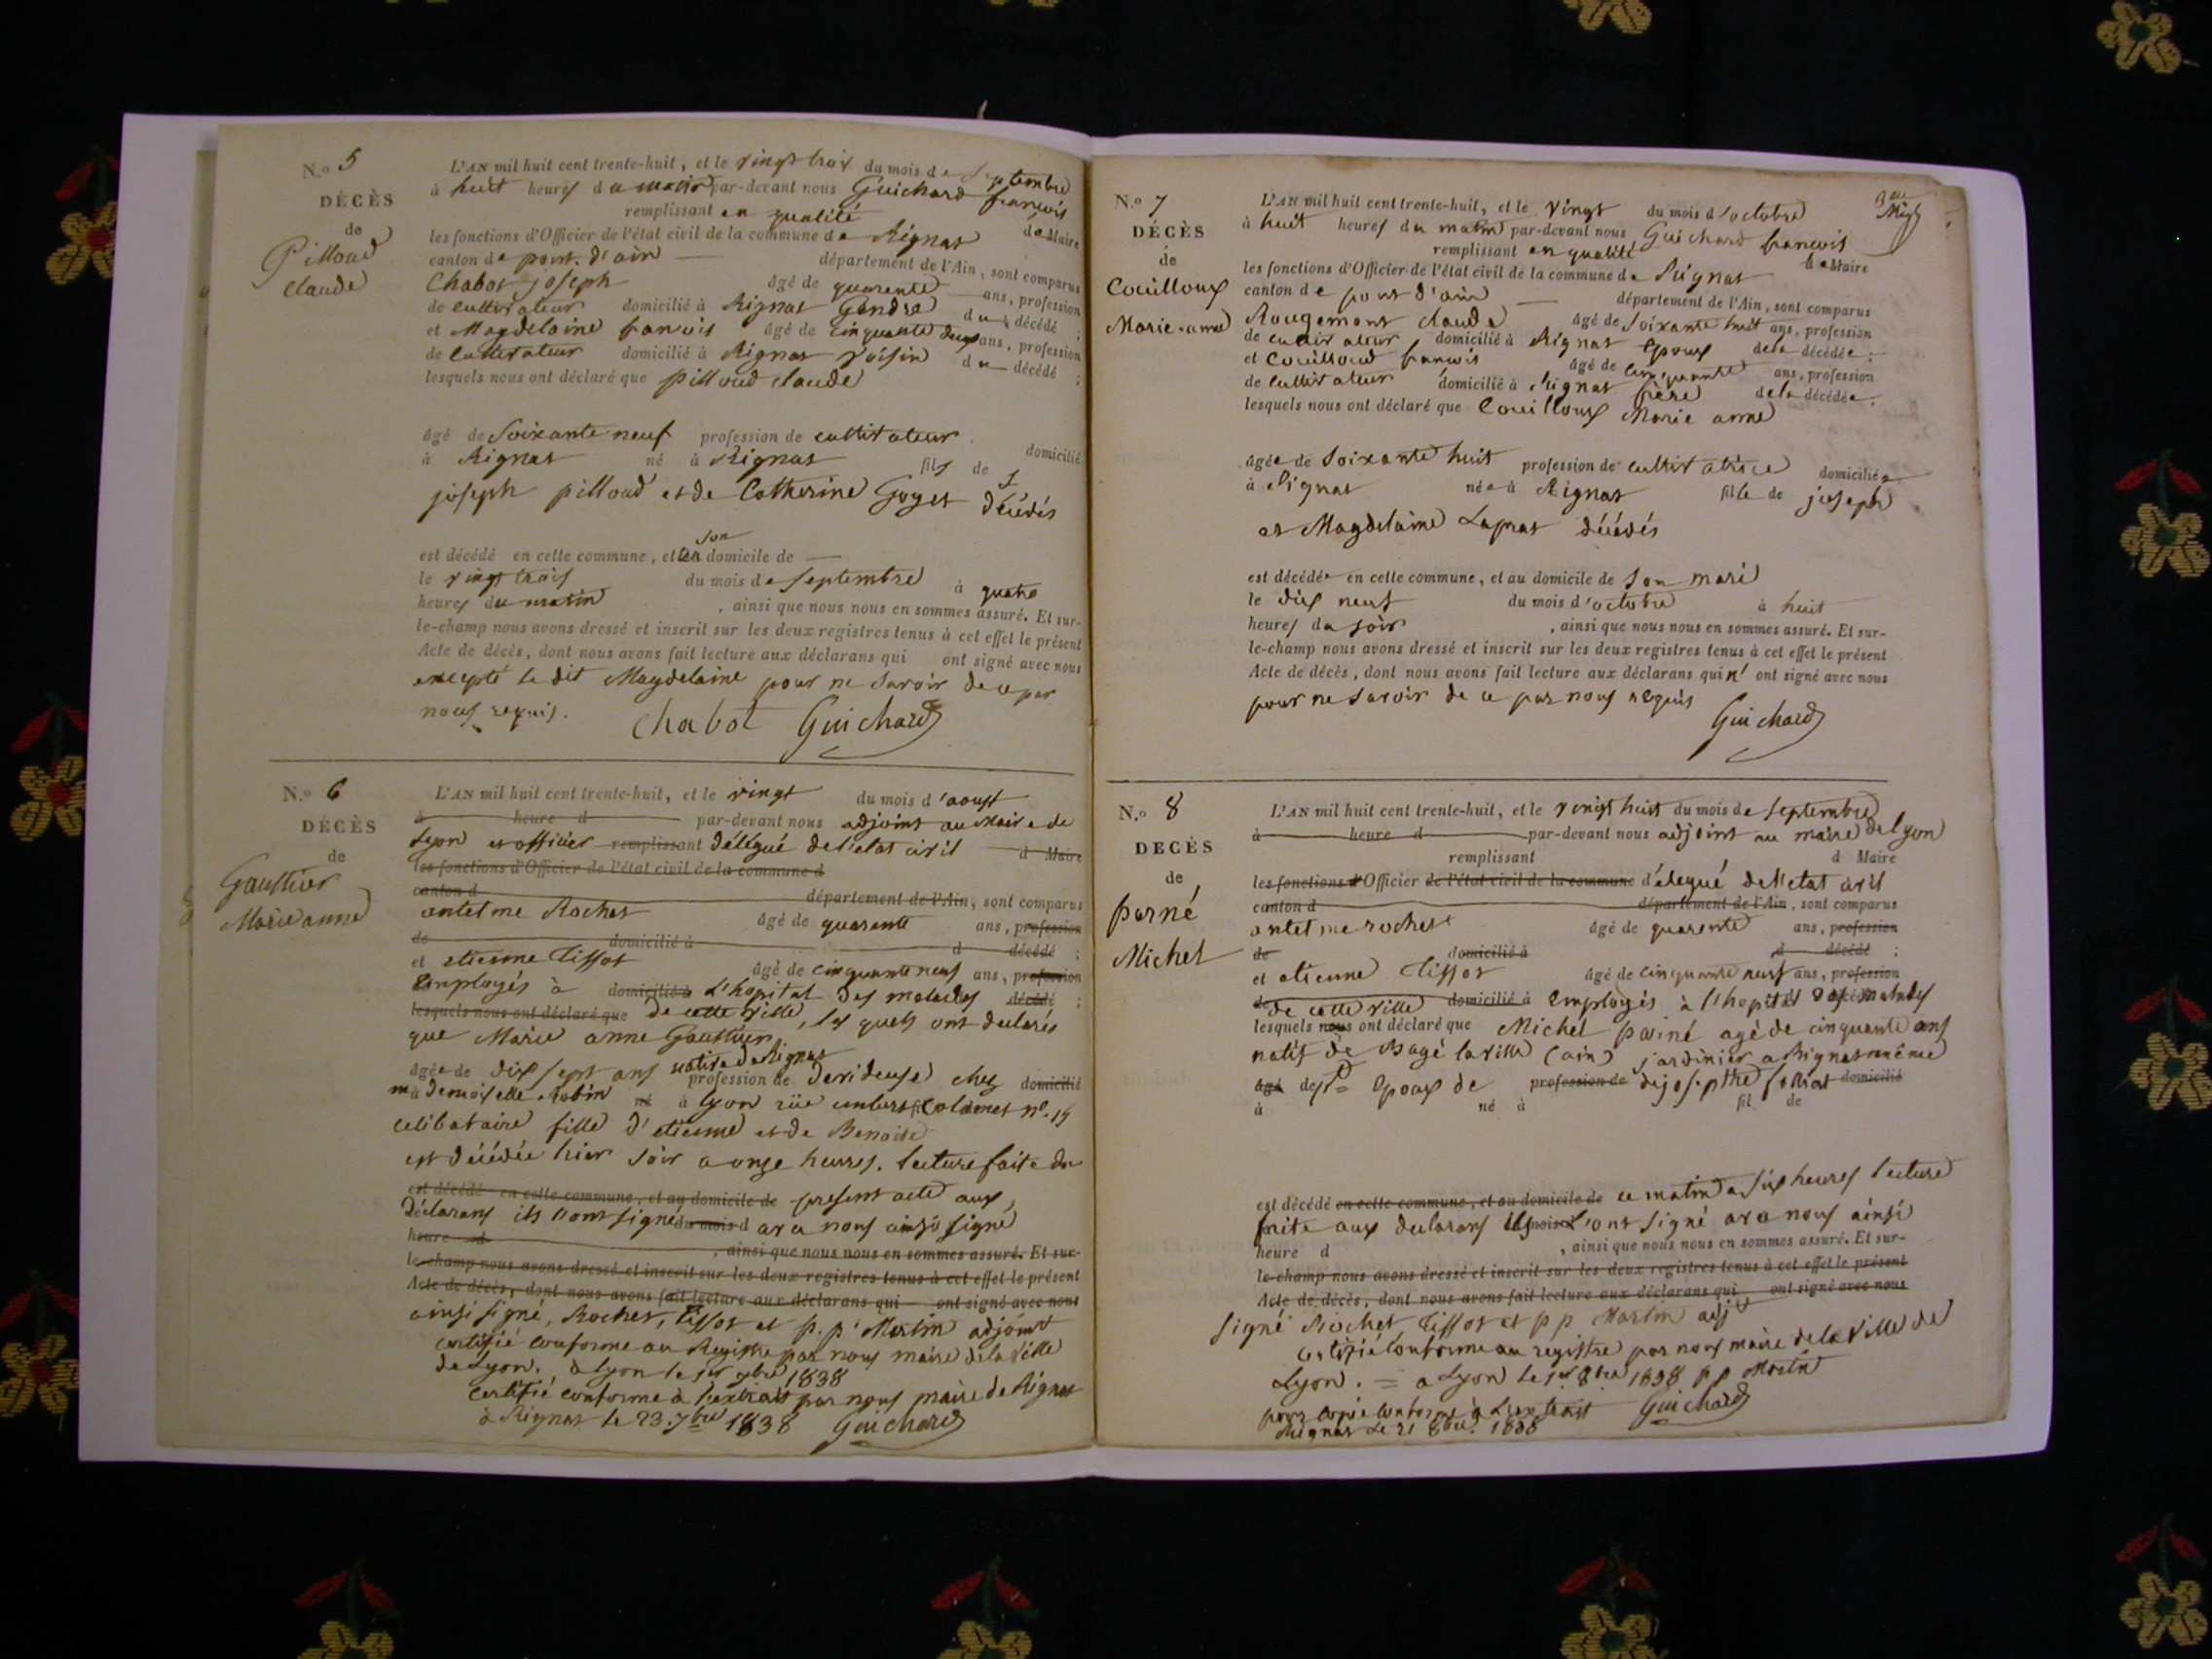 N.o 5
DÉCÈS
de
Pilloud
Claude
L'AN mil huit cent trente-huit, et le vingt trois du mois de Septembre
à huit heures du matin par-devant nous Guichard françois
remplissant en qualité de Maire
les fonctions d'Officier de l'état civil de la commune de Rignat
canton de pont. d'ain — département de l'Ain, sont comparus
Chabot joseph âgé de quarente ans, profession
de cultivateur domicilié à Rignat Gendre du décédé ;
et Magdelaine françois âgé de cinquante deux ans, profession
de cultivateur domicilié à Rignat voisin du décédé ;
lesquels nous ont déclaré que pilloud claude
âgé de Soixante neuf profession de cultivateur domicilié
à Rignat né à Rignat fils de
joseph pilloud et de Catherine Goyet décédés
est décédé en cette commune, et en son domicile de —
le vingt trois du mois de Septembre à quatre
heures du matin, ainsi que nous nous en sommes assuré. Et sur-
le-champ nous avons dressé et inscrit sur les deux registres tenus à cet effet le présent
Acte de décès, dont nous avons fait lecture aux déclarans qui ont signé avec nous
excepté le dit Magdelaine pour ne savoir de ce par
nous requis. Chabot Guichard
N.o 6
DÉCÈS
de
Gauthier
Marie anne
L'AN mil huit cent trente-huit, et le vingt du mois d'aoust
à heure d par-devant nous adjoint au Maire de
Lyon et officier remplissant délégué de l'etat civil d Maire
les fonctions d'Officier de l'état civil de la commune d
canton d département de l'Ain, sont comparus
antelme Rochet âgé de quarente ans, profession
de domicilié à d décédé ;
et etienne Tissot âgé de cinquante neuf ans, profession
Employés à domicilié à L'hopital des malades décédé ;
lesquels nous ont déclaré que de cette ville, les quels ont declarés
que Marie anne Gauthier
âgée de dix sept ans native de Rignat profession de devideuse chez domicilié
mademoiselle Robin né à lyon rüe n°. 15
celibataire fille d'etienne et de Benoite
est décédée hier soir a onze heures. lecture faite du
est décédé en cette commune, et au domicile de present acte aux
déclarans ils l'ont signé du mois d avec nous ainsi signé
heure d , ainsi que nous nous en sommes assuré. Et sur-
le-champ nous avons dressé et inscrit sur les deux registres tenus à cet effet le présent
Acte de décès, dont nous avons fait lecture aux déclarans qui ont signé avec nous
ainsi signé, Rochet, Tissot et p. p. Martin adjoint
certifié conforme au Registre par nous maire de la ville
de Lyon. à Lyon le 1er 7bre 1838
certifié conforme à l'extrait par nous maire de Rignat
à Rignat le 23. 7bre 1838 Guichard
N.o 7
DÉCÈS
de
Couilloux
Marie-anne
L'AN mil huit cent trente-huit, et le vingt du mois d'octobre
à huit heures du matin par-devant nous Guichard françois
remplissant en qualité de Maire
les fonctions d'Officier de l'état civil de la commune de Rignat
canton de pont d'ain — département de l'Ain, sont comparus
Rougemont claude âgé de Soixante huit ans, profession
de cultivateur domicilié à Rignat Epoux de la décédée ;
et Couilloud françois âgé de cinquante ans, profession
de cultivateur domicilié à Rignat frère de la décédée ;
lesquels nous ont déclaré que Couilloux Marie anne
âgée de Soixante huit profession de cultivatrice domiciliée
à Rignat née à Rignat fille de joseph
et Magdelaine Lapras décédés
est décédée en cette commune, et au domicile de Son mari
le dix neuf du mois d'octobre à huit
heures du soir, ainsi que nous nous en sommes assuré. Et sur-
le-champ nous avons dressé et inscrit sur les deux registres tenus à cet effet le présent
Acte de décès, dont nous avons fait lecture aux déclarans qui n'ont signé avec nous
pour ne savoir de ce par nous requis
Guichard
N.o 8
DECÈS
de
parné
Michel
L'AN mil huit cent trente-huit, et le vingt huit du mois de Septembre
à heure d par-devant nous adjoint au maire de Lyon
remplissant d Maire
les fonctions d'Officier de l'état civil de la commune délegué de l'etat civil
canton d département de l'Ain, sont comparus
antelme rochet âgé de quarente ans, profession
de domicilié à d décédé ;
et etienne Tissot âgé de cinquante neuf ans, profession
de de cette ville domicilié à Employés à l'hopital des malades
lesquels nous ont déclaré que Michel parné agé de cinquante ans
natif de Bagé la ville (ain) jardinier a Rignat même
âgé de Epoux de profession de de josephte domicilié
à né à fil de
est décédé en cette commune, et au domicile de ce matin a six heures lecture
faite aux declarans ils l'ont signé avec nous ainsi
heure d , ainsi que nous nous en sommes assuré. Et sur-
le-champ nous avons dressé et inscrit sur les deux registres tenus à cet effet le présent
Acte de décès, dont nous avons fait lecture aux déclarans qui ont signé avec nous
signé Rochet Tissot et p p Martin adjt
certifié conforme au registre par nous maire de la ville de
Lyon. = a Lyon le 1er 8bre 1838 p p Martin
pour copie conforme à L'extrait Guichard
Rignat le 21 8bre. 1838